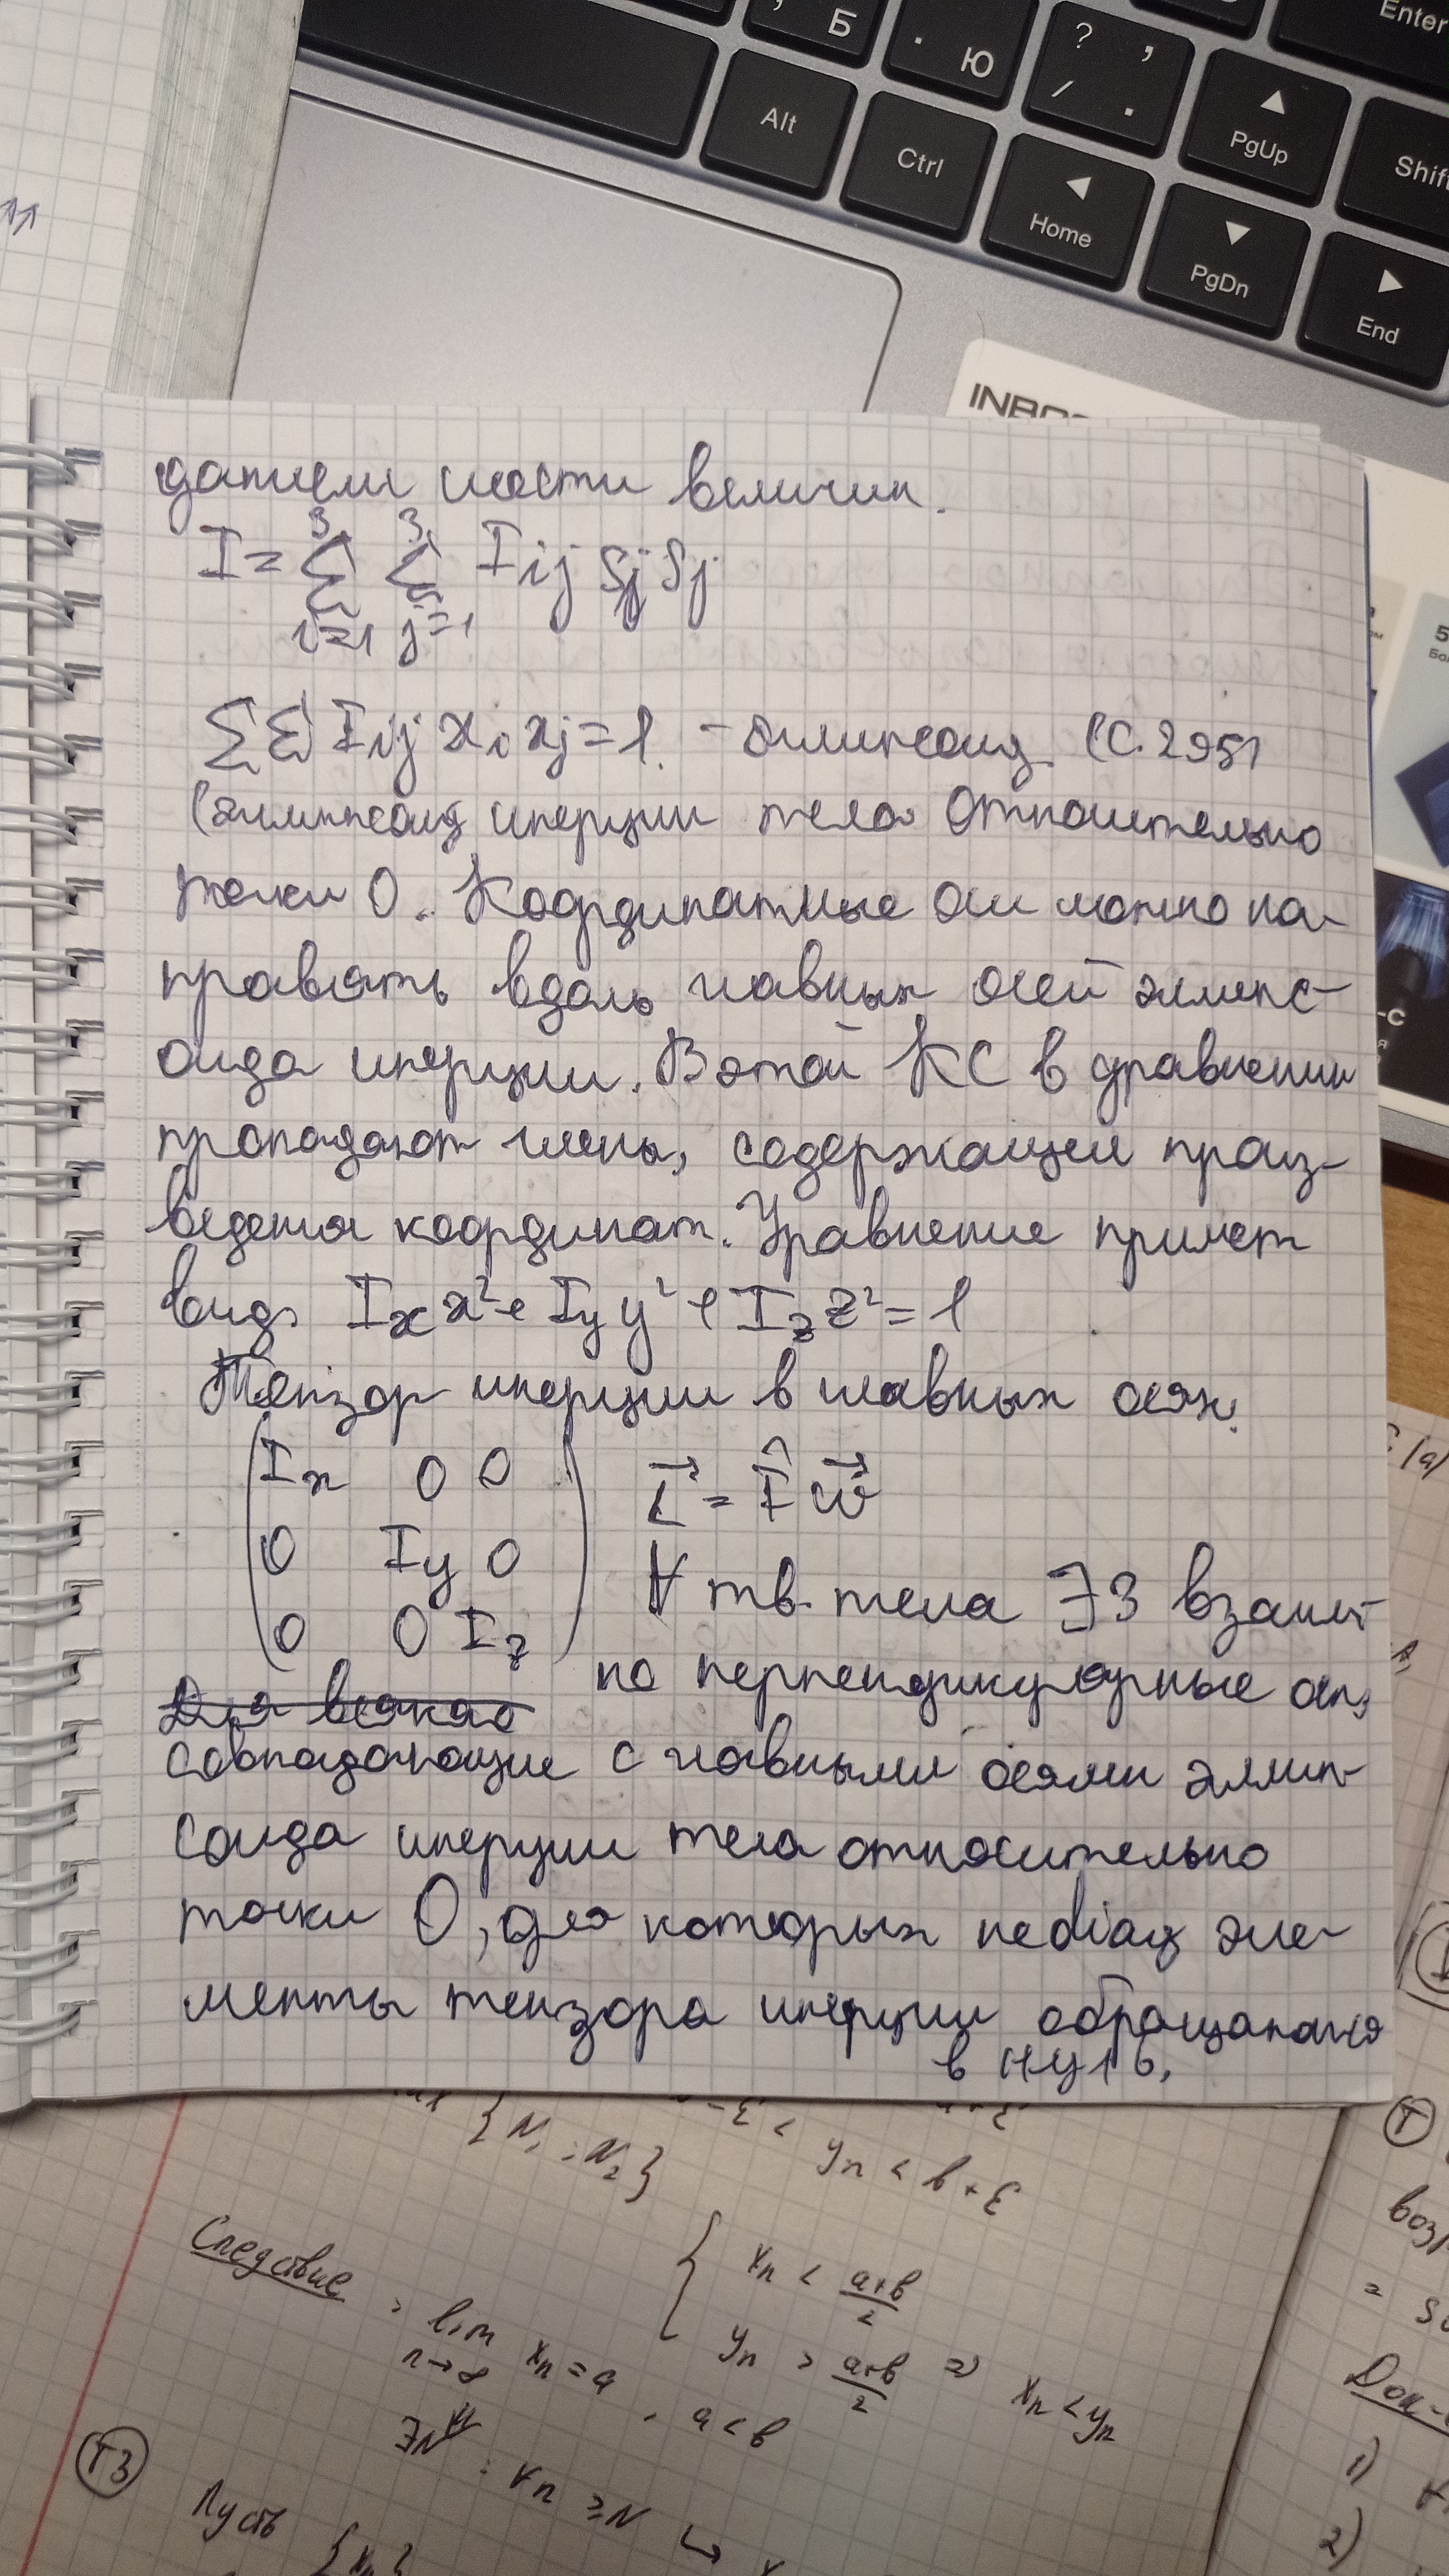 Б
Ю
? ,
/ .
Enter
Alt
Ctrl
PgUp
Shift
Home
PgDn
End
INBO
данием шести величин.
I = 3 3 Iij Sj Sj
Σ Σ
i=1 j=1
ΣΣ Iij xi xj = 1 - эллипсоид (С. 295)
(эллипсоид инерции тела относительно
точки О. Координатные оси можно на-
править вдоль главных осей эллипс-
оида инерции. В этой КС в уравнении
пропадают члены, содержащей произ-
ведения координат. Уравнение примет
вид: Ix x² + Iy y² + Iz z² = 1
Тензор инерции в главных осях.
Ix 0 0
0 Iy 0
0 0 Iz
L = Î ω
∀ тв. тела ∃ 3 взаим-
но перпендикулярные оси,
Для всякого
совпадающие с главными осями эллип-
соида инерции тела относительно
точки О, для которых неdiag эле-
менты тензора инерции обращаются
в нуль.
{N₁; N₂}
yn < b + ε
Следствие: lim xn = a, a < b
n→∞
{ xn < a+b/2
yn > a+b/2 ⇒ xn < yn
∃N : ∀n ≥ N ↪
T3
Пусть {xn}
T
воз
= s
Док-
1)
2)